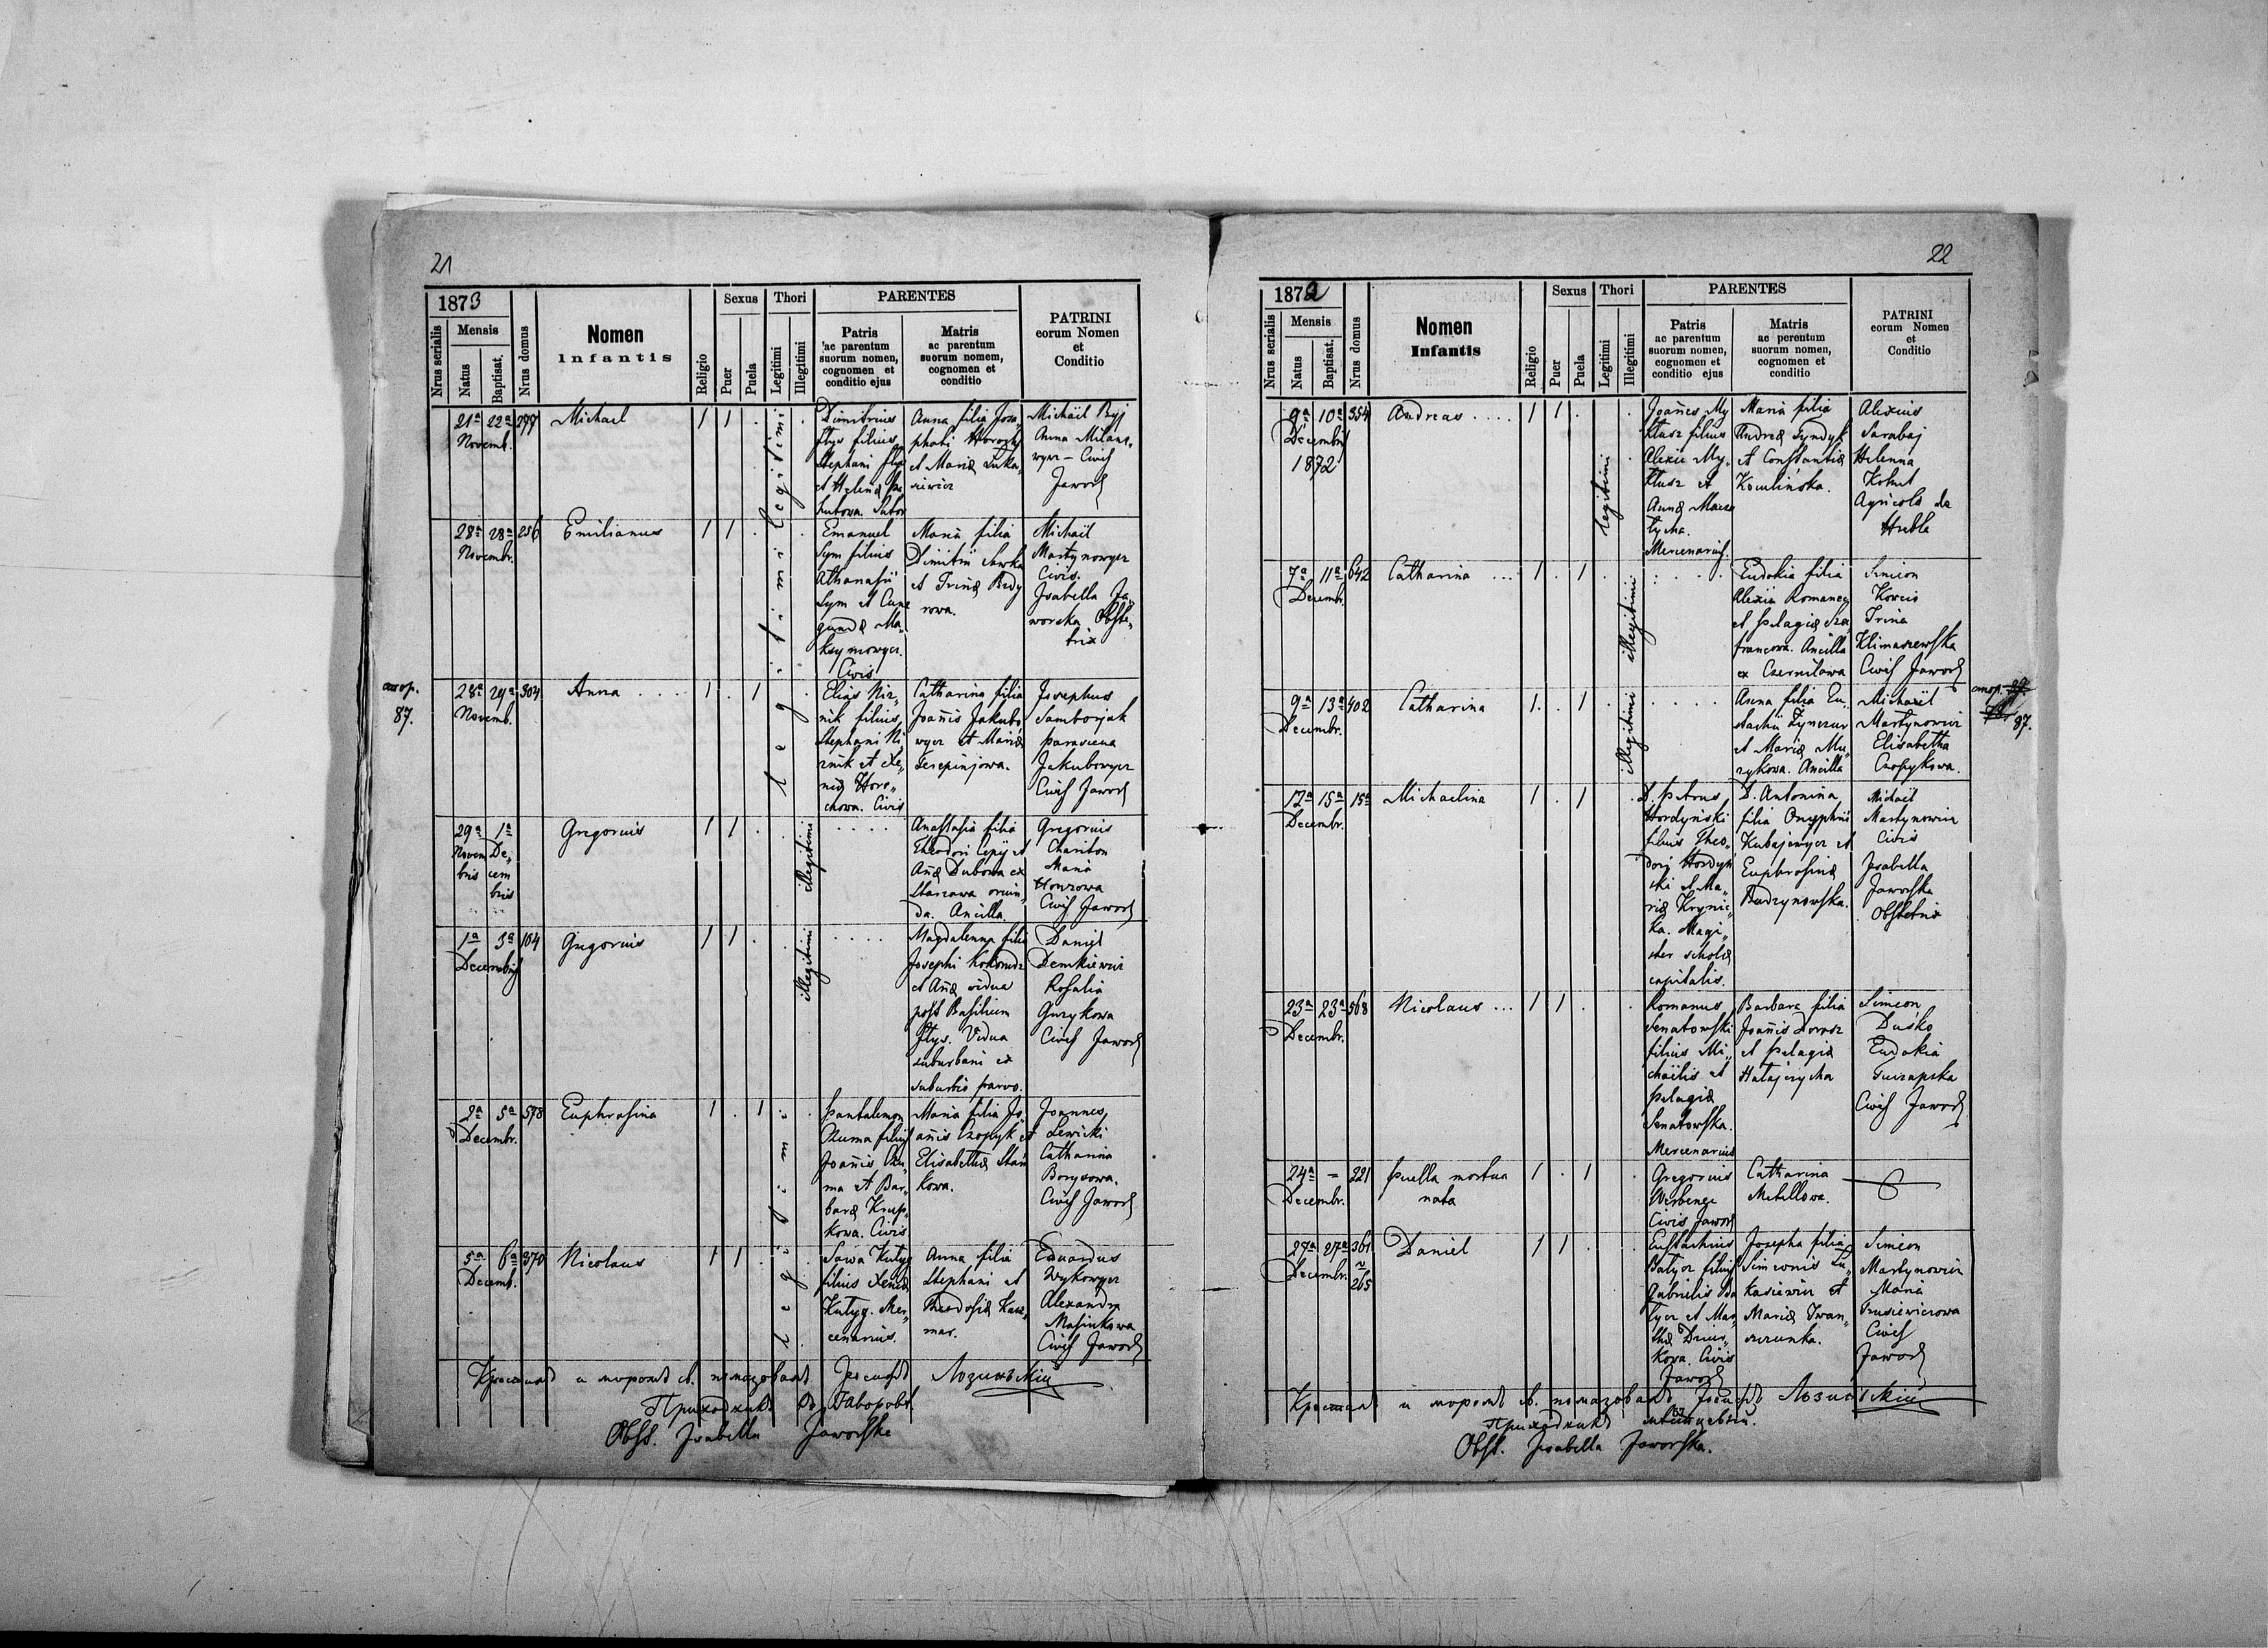 21
1873
Nrus serialis
Mensis
Natus
Baptisat.
Nrus domus
Nomen
Infantis
Religio
Sexus
Puer
Puela
Thori
Legitimi
Illegitimi
PARENTES
Patris
ac parentum
suorum nomen,
cognomen et
conditio ejus
Matris
ac parentum
suorum nomem,
cognomen et
conditio
PATRINI
eorum Nomen
et
Conditio
21ª 22ª 277
Novemb.
Michael
1 1
legitimi
Dimitrius
filius
Stephani
et Helenæ
Anna filia Jose
phati
et Mariæ Luka
siewicz
Michael Byj
Anna
Cives
Jawor
28ª 28ª 256
Novembr.
Emilianus
1 1
Emanuel
Sym filius
Athanasii
Sym et Cune
gundæ Ma
ksymowycz.
Civis
Maria filia
Dimitrii Sawka
et Irinæ Brdy
rowa.
Michael
Martynowycz
Civis.
Isabella Ja
worska Obste
trix
87.
28ª 29ª 304
Novemb.
Anna
1 1
legitimi
Elias Nir
nik filius
Stephani Ni
rnik et Xe
niæ Horo
chowa. Civis
Catharina filia
Joannis Jakubo
wycz et Mariæ
Josephus
Samborjak
Parascena
Jakubowycz
Cives Jawor
29ª 1ª
Novem De
bris cem
bris
Gregorius
1 1
illegitimi
Anastasia filia
Theodori Cepij et
Annæ Dubowa ex
Starzawa oriun
da. Ancilla.
Gregorius
Chariton
Maria
Cives Jawor
1ª 3ª 104
Decembris
Gregorius
1 1
illegitimi
Magdalenna filia
Josephi
et Annæ vidua
post Basilium
Vidua
suburbani ex
suburbio parvo.
Daniel
Demkiewicz
Rosalia
Guzykowa
Cives Jawor
2ª 5ª 578
Decembr.
Euphrosina
1 1
legitimi
Pantalemon
Czuma filius
Joannis Czu
ma et Bar
baræ Krup
kowa. Civis
Maria filia Jo
annis Czopyk et
Elisabethæ Stań
kowa.
Joannes
Lewicki
Catharina
Borysowa.
Cives Jawor
5ª 6ª 370
Decemb.
Nicolaus
1 1
Sawa Kutyg
filius Xeniæ
Kutyg. Mer
cenarius.
Anna filia
Stephani et
Theodosiæ Kacz
mar.
Eduardus
Wykowycz
Alexandra
Masiukowa
Cives Jawor
Крестилъ и мѵромъ св. помазовалъ Іосифъ Лозинскій
Приходникъ въ Яворовѣ
Obst. Isabella Jaworska
22
1872
Nrus serialis
Mensis
Natus
Baptisat.
Nrus domus
Nomen
Infantis
Religio
Sexus
Puer
Puela
Thori
Legitimi
Illegitimi
PARENTES
Patris
ac parentum
suorum nomen,
cognomen et
conditio ejus
Matris
ac perentum
suorum nomen,
cognomen et
conditio
PATRINI
eorum Nomen
et
Conditio
9ª 10ª 354
Decembris
1872
Andreas
1 1
legitimi
Joannes My
ktusz filius
Alexii My
ktusz et
Annæ
tycha.
Mercenarius.
Maria filia
Andreæ Syndyk
et Constantiæ
Kowlińska.
Alexius
Sarabaj
Helenna
Kohut
Agricolæ de
7ª 11ª 642
Decembr.
Catharina
1 1
illegitimi
Eudokia filia
Alexii Romanec
et Pelagiæ Sza
francowa. Ancilla
ex Czernilawa
Simeon
Korcis
Irina
Klimaszewska
Cives Jawor
9ª 13ª 402
Decembr.
Catharina
1 1
illegitimi
Anna filia Eu
stachii
et Mariæ Mu
zykowa. Ancilla
Michael
Martynowicz
Elisabetha
Czopykowa.
87.
12ª 15ª 15ª
Decembr.
Michaelina
1 1
D. Petrus
Hordyński
filius Theo
dori Hordyń
ski et Ma
riæ Krynic
ka. Magi
ster scholæ
capitalis.
D. Antonina
filia Onuphrii
Kubajewycz et
Euphrosinæ
Budzynowska.
Michael
Martynowicz
Civis
Isabella
Jaworska
Obstetrix
23ª 23ª 568
Decembr.
Nicolaus
1 1
Romanus
Senatowski
filius Mi
chaelis et
Pelagiæ
Senatowska.
Mercenarius
Barbara filia
Joannis Dorosz
et Pelagiæ
Simeon
Duśko
Eudokia
Cives Jawor
24ª = 221
Decembr.
Puella mortua
nata
1 1
Gregorius
Werbenec
Civis Jawor
Catharina
Metellowa.
27ª 27ª 361
Decembr. 265
Daniel
1 1
Eustachius
Batycz filius
Gabrielis Ba
tycz et Mar
thæ
kowa. Civis
Jawor
Josepha filia
Simeonis Lu
kasiewicz et
Mariæ Iwan
Simeon
Martynowicz
Maria
Cives
Jawor
Крестилъ и мѵромъ св. помазовалъ Іосифъ Лозинскій
Приходникъ мѣстцевый.
Obst. Isabella Jaworska.